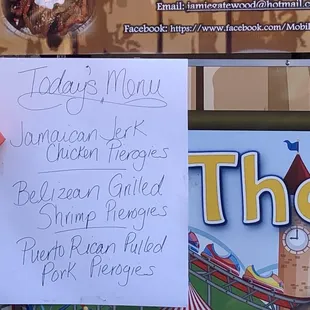 Email: jamiegatewood@hotmail.c
Facebook: https://www.facebook.com/Mobil
Today's Menu
Jamaican Jerk
Chicken Pierogies
Belizean Grilled
Shrimp Pierogies
Puerto Rican Pulled
Pork Pierogies
The